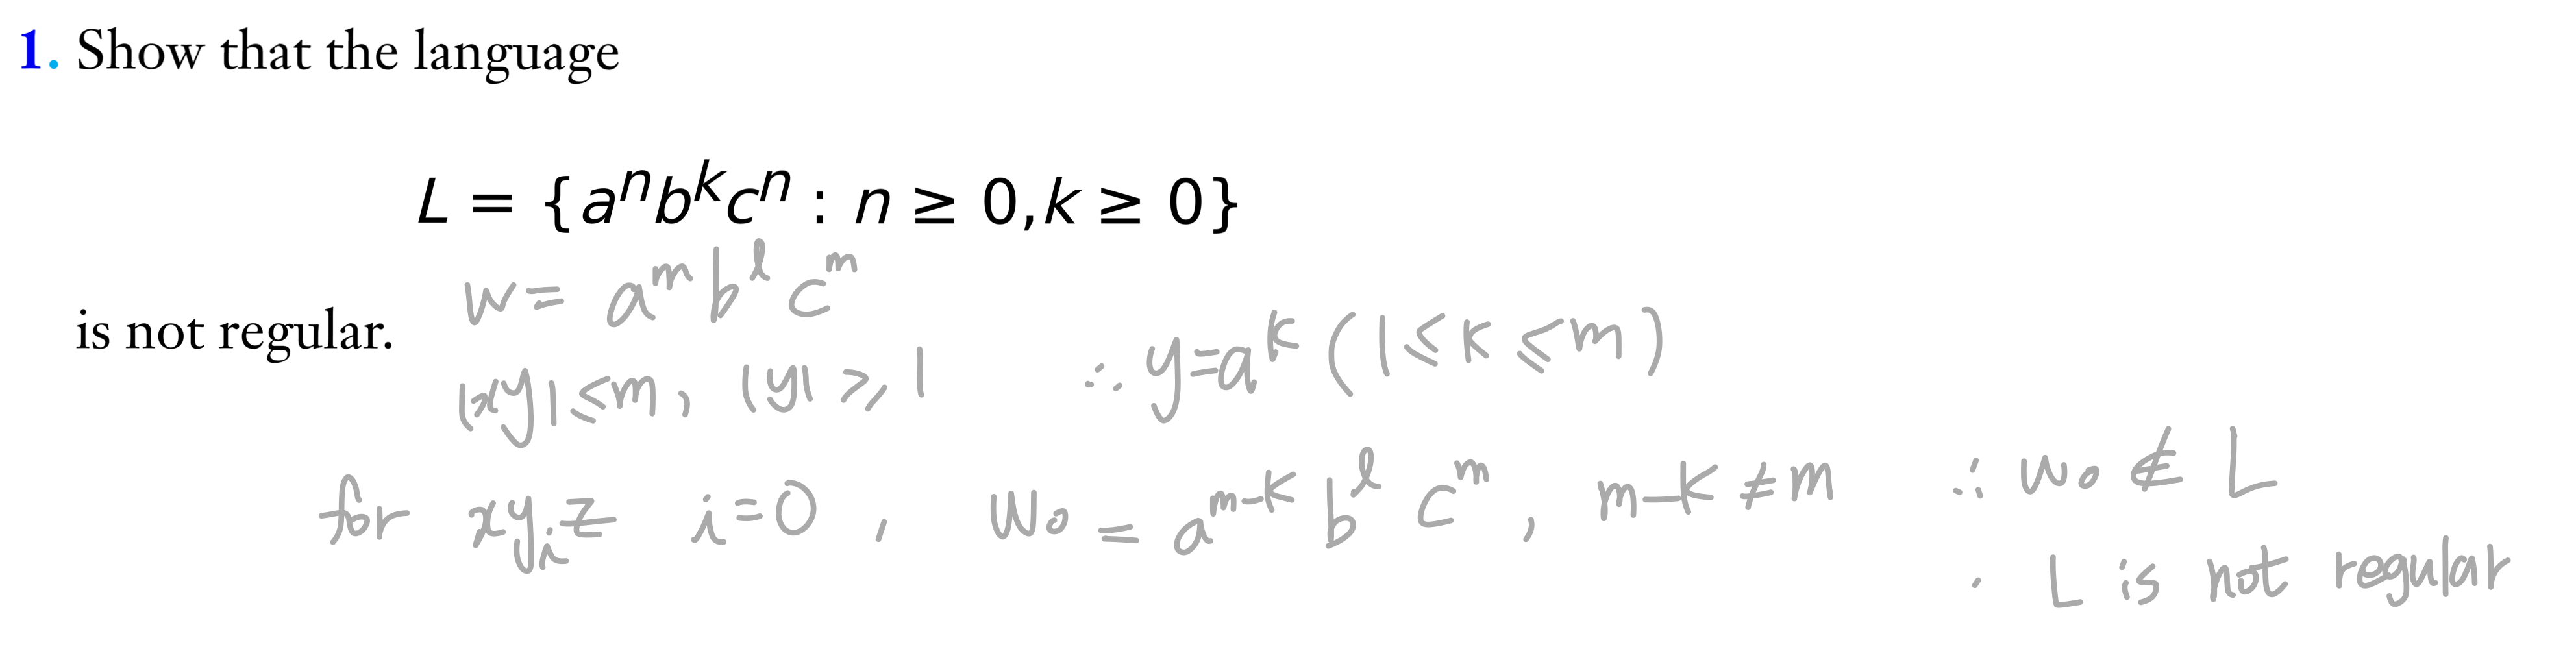 1. Show that the language
L = {aⁿbᵏcⁿ : n ≥ 0, k ≥ 0}
is not regular.
w = aᵐ bˡ cᵐ
|xy| ≤ m, |y| ≥ 1 ∴ y = aᵏ (1 ≤ k ≤ m)
for xyᵢz i=0 , w₀ = aᵐ⁻ᵏ bˡ cᵐ , m-k ≠ m ∴ w₀ ∉ L
· L is not regular